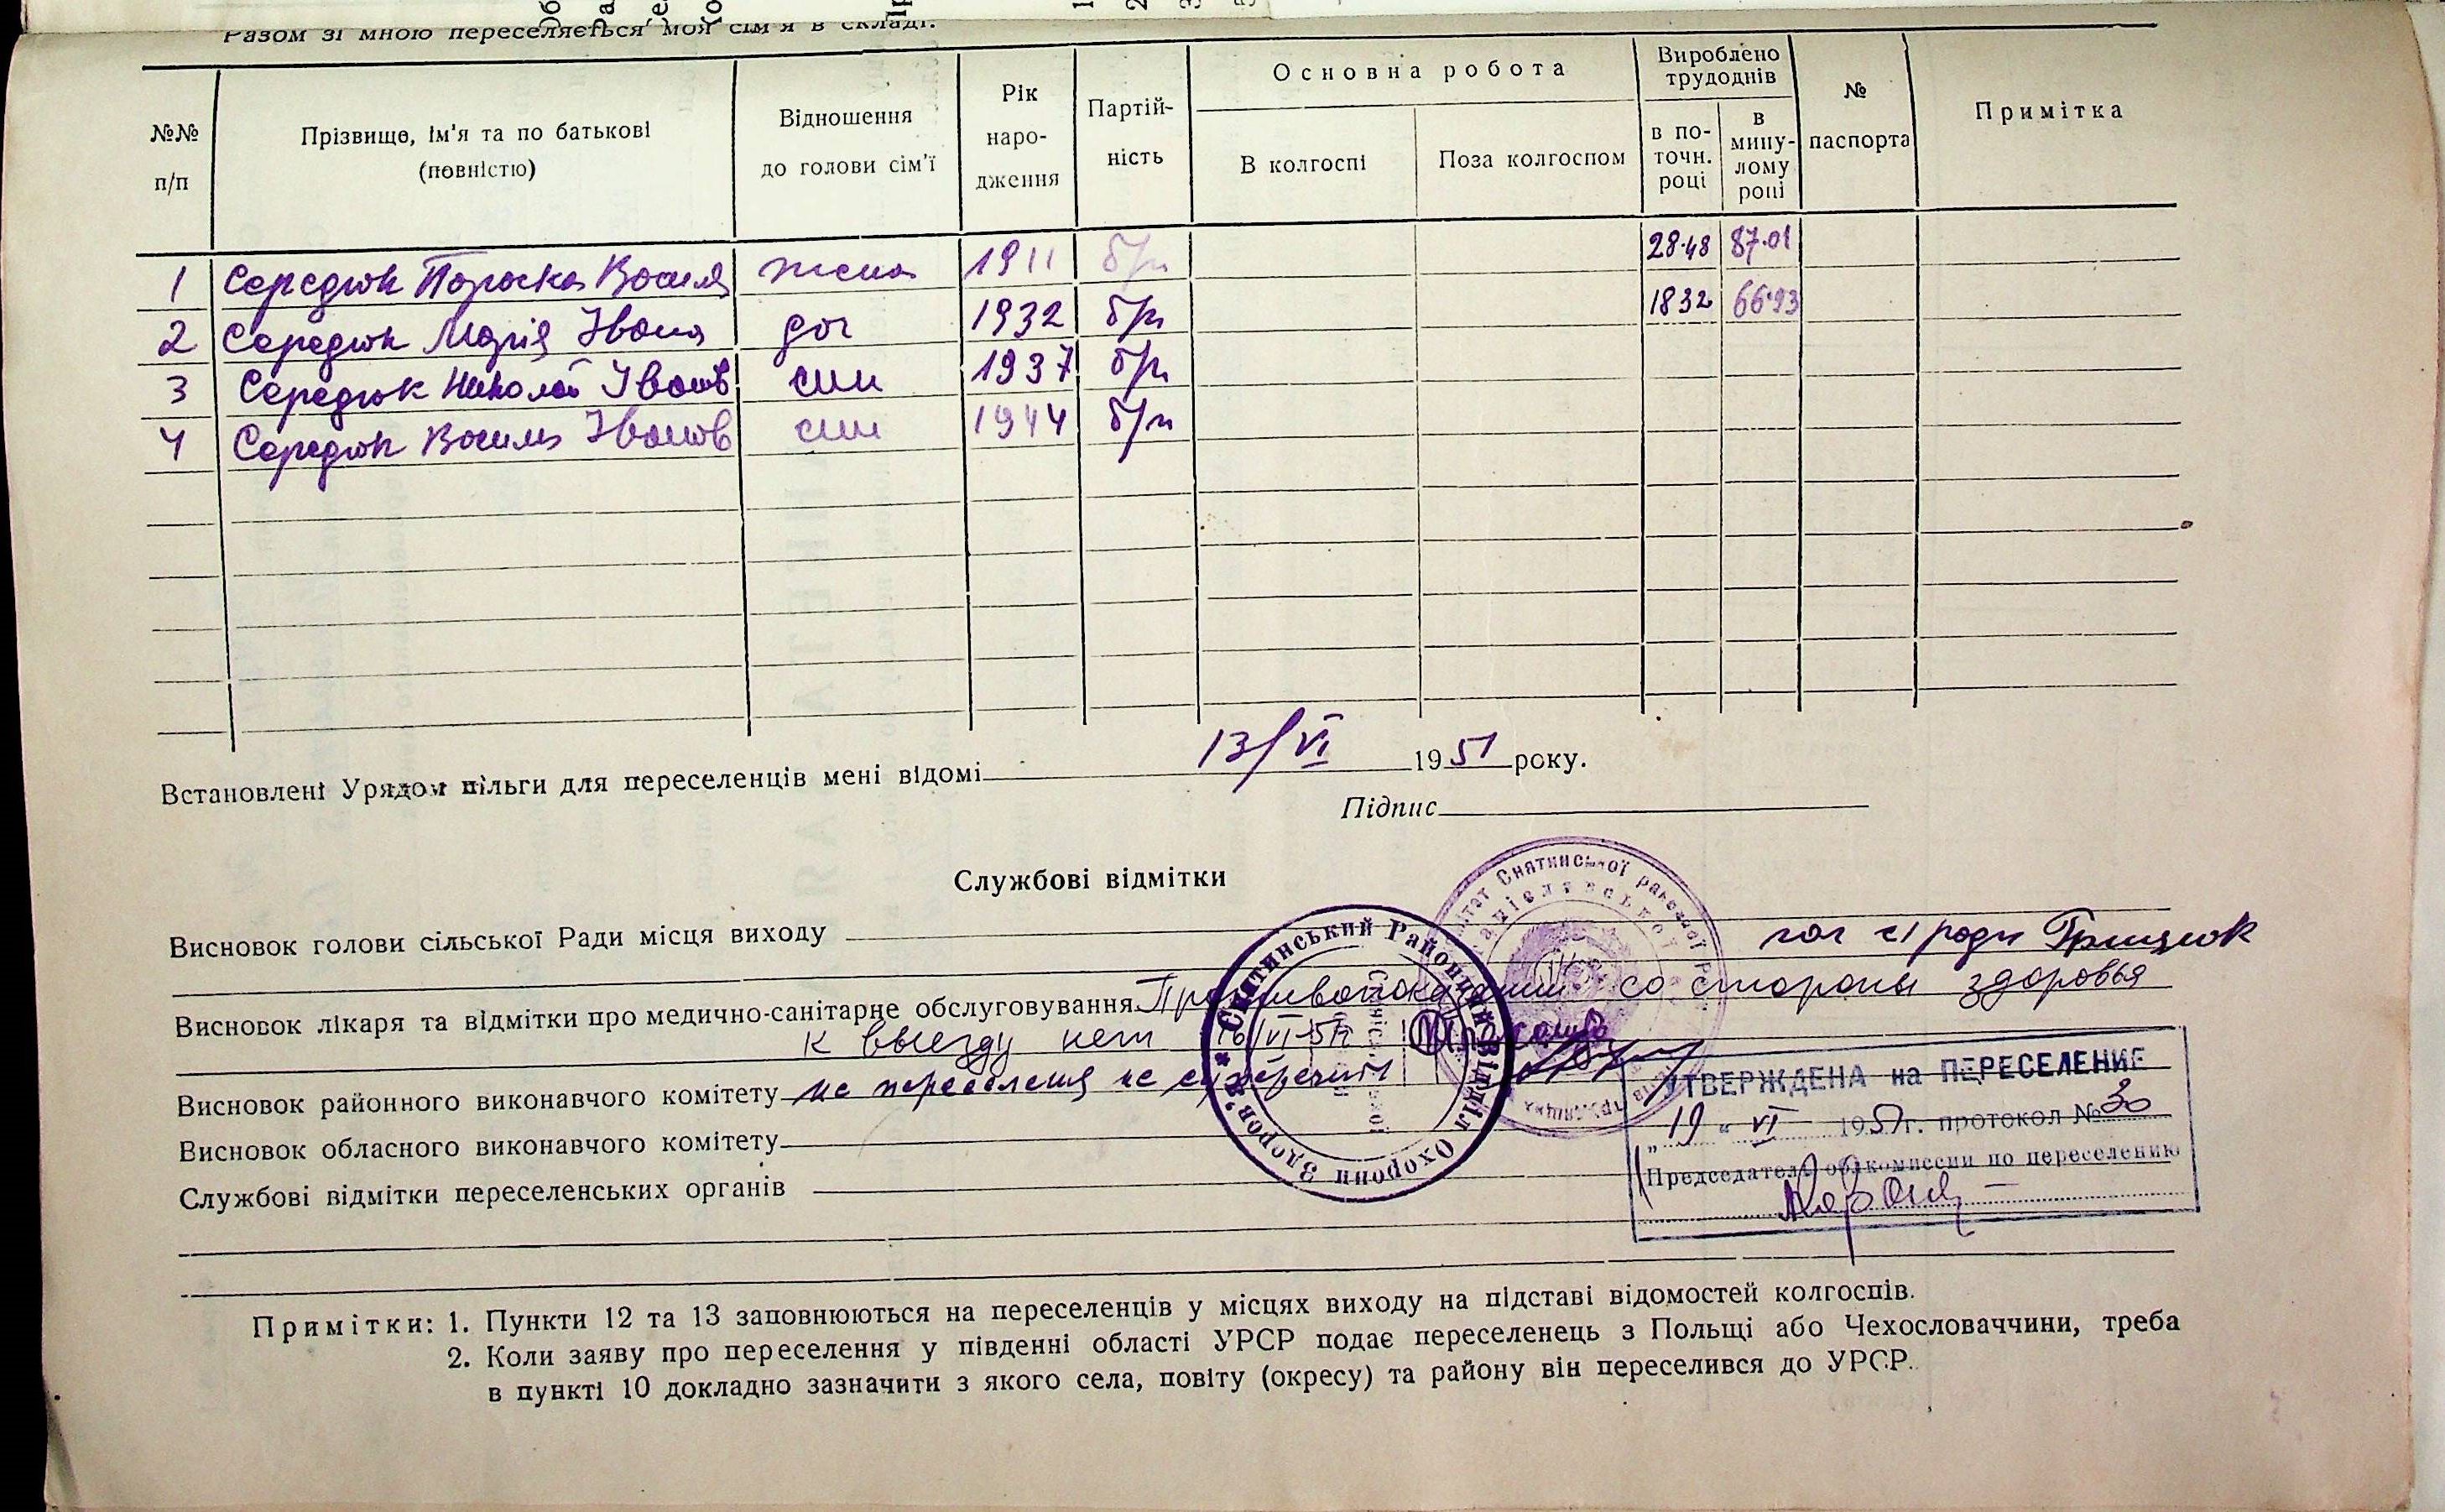 Разом зі мною переселяється моя сім'я в складі:
№№ п/п
Прізвище, ім'я та по батькові (повністю)
Відношення до голови сім'ї
Рік наро- дження
Партій- ність
Основна робота
В колгоспі
Поза колгоспом
Вироблено трудоднів
в по- точн. році
в мину- лому році
№ паспорта
Примітка
1 Середюк Параска Василя жена 1911 б/п 28.48 87.01
2 Середюк Марія Івана доч 1932 б/п 1832 66.93
3 Середюк Николай Іванов син 1937 б/п
4 Середюк Василь Іванов син 1944 б/п
Встановлені Урядом пільги для переселенців мені відомі 13/VI 1951 року.
Підпис
Службові відмітки
Висновок голови сільської Ради місця виходу
гол с/ ради Грицюк
Висновок лікаря та відмітки про медично-санітарне обслуговування Противопоказаний со стороны здоровья
к выезду нет 16/VI-51
Висновок районного виконавчого комітету не переселення не суперечит
Висновок обласного виконавчого комітету
Службові відмітки переселенських органів
Снятинський Районний Відділ Охорони Здоров'я
Снятинської районної
УТВЕРЖДЕНА на ПЕРЕСЕЛЕНИЕ
„19" VI 1951г. протокол № 30
Председатель облкомиссии по переселению
Примітки: 1. Пункти 12 та 13 заповнюються на переселенців у місцях виходу на підставі відомостей колгоспів.
2. Коли заяву про переселення у південні області УРСР подає переселенець з Польщі або Чехословаччини, треба
в пункті 10 докладно зазначити з якого села, повіту (окресу) та району він переселився до УРСР.